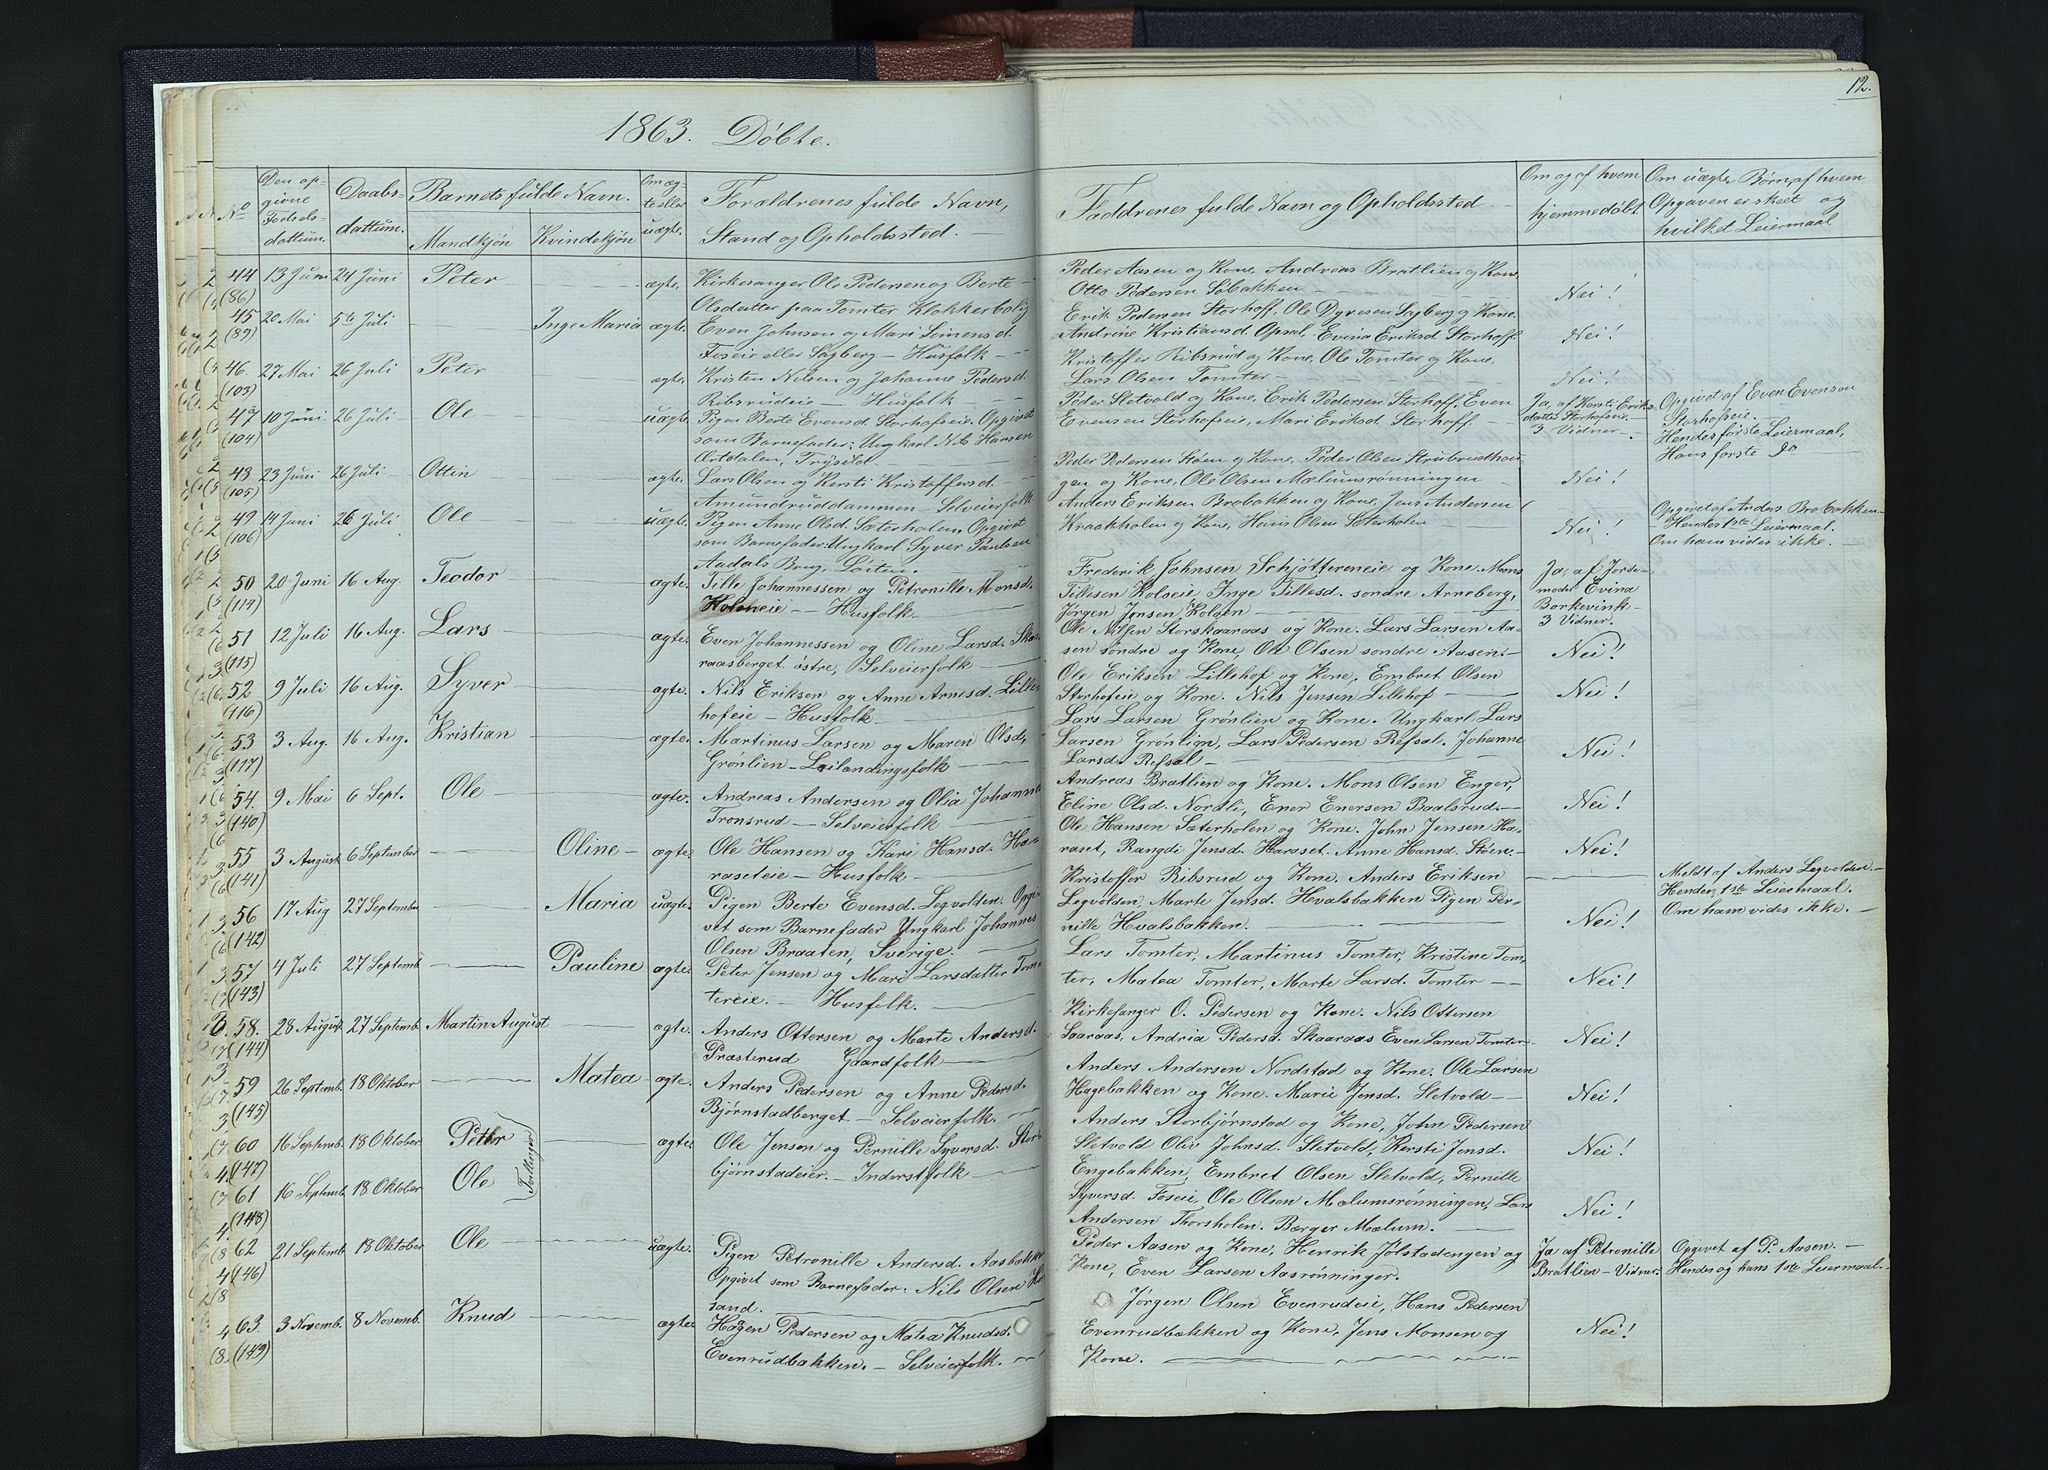 12.
1863. Döbte.
No
Den op-
givne
Fødsels-
dattum.
Daabs-
dattum.
Barnets fulde Navn.
Mandkjøn
Kvindekjøn
Om æg-
te eller
uægte.
Forældrenes fulde Navn,
Stand og Opholdssted.
Faddrenes fulde Navn og Opholdssted
Om og af hvem
hjemmedøbt.
Om uægte Børn, af hvem
Opgaven er skeet og
hvilket Leiermaal
44 13 Juni 24 Juni Peter ægte. Kirkesanger Ole Pedersen og Berte
(86) Olsdatter paa Tomter Klokkerbolig
Peder Aasen og Kone, Andreas Bratlien og Kone,
Otto Pedersen Søbakken Nei!
45 20 Mai 5te Juli Inge Maria ægte. Even Johnsen og Mari Simensd.
(89) Foseie eller Sagberg – Husfolk
Erik Pedersen Storhoff, Ole Dyresen Sagberg og Kone.
Andrine Kristiansd. Opsal, Evina Eriksd. Storhoff. Nei!
46. 27 Mai 26 Juli Peter ægte. Kristen Nilsen og Johanne Pedersd.
(103) Ribsrudeie – Husfolk
Kristoffer Ribsrud og Kone, Ole Tomter og Kone,
Lars Olsen Tomter Nei!
47 10 Juni 26 Juli Ole uægte Pigen Berte Evensd. Storhofseie. Opgivet
(104) som Barnefader: Ungkarl Nils Hansen
Ørtdalen, Trysild.
Peder Sletvold og Kone, Erik Pedersen Storhoff, Even
Evensen Storhofseie, Mari Eriksd. Storhoff.
Ja, af Kersti Eriks-
datter Storhofseie
3 Vidner.
Opgivet af Even Evensen
Storhofseie.
Hendes første Leiermaal,
Hans første do
48 23 Juni 26 Juli Ottin ægte. Lars Olsen og Kersti Kristoffersd.
(105) Amundruddammen – Selveierfolk
Peder Pedersen Støen og Kone, Peder Olsen Strubrudhau-
gen og Kone, Ole Olsen Mælumsrønningen Nei!
49 14 Juni 26 Juli Ole uægte Pigen Anne Olsd. Sæterholen, Opgivet
(106) som Barnefader: Ungkarl Syver Paulsen
Aadals Brug. Løiten.
Anders Eriksen Brobakken og Kone, Jens Andersen
Kraakholen og Kone, Hans Olsen Sæterholen Nei!
Opgivet af Anders Brobakken
Hendes 1ste Leiermaal.
Om ham vides ikke.
50 20 Juni 16 Aug. Teodor ægte Tille Johannessen og Petronille Monsd.
(114) Kolseie – Husfolk
Frederik Johnsen Schjøttereneie og Kone. Mons
Tillesen Kolseie, Inge Tillesd. søndre Arneberg,
Jørgen Jensen Kolsen
Ja, af Jorde-
moder Evina
Borkevink
3 Vidner.
51 12 Juli 16 Aug. Lars ægte. Even Johannessen og Oline Larsd. Skaa-
(115) raasberget østre, Selveierfolk
Ole Nilsen Storskaaraas og Kone. Lars Larsen Aa-
sen søndre og Kone, Ole Olsen søndre Aasen. Nei!
52 9 Juli 16 Aug. Syver ægte. Nils Eriksen og Anne Arnesd. Lille-
(116) hofeie – Husfolk
Ole Eriksen Lillehof og Kone, Embret Olsen
Storhofeie og Kone. Nils Jensen Lillehof Nei!
53 3 Aug. 16 Aug. Kristian ægte. Martinus Larsen og Maren Olsd.
(117) Grønlien – Leilændingsfolk
Lars Larsen Grønlien og Kone. Ungkarl Lars
Larsen Grønlien, Lars Pedersen Refsal. Johanne
Larsd. Refsal Nei!
54. 9 Mai 6 Sept. Ole ægte. Andreas Andersen og Olia Johannes
(140) Tronsrud – Selveierfolk
Andreas Bratlien og Kone. Mons Olsen Enger,
Eline Olsd. Nordli, Ener Enersen Baalsrud. Nei!
55 3 August 6 September Oline ægte. Ole Hansen og Kari Hansd. Ha-
(141) raseteie – Husfolk
Ole Hansen Sæterholen og Kone. John Jensen Ha-
raset, Rangdi Jensd. Haraset. Anne Hansd. Støen. Nei!
56 17 Aug 27 September Maria uægte. Pigen Berte Evensd. Legvolden. Opgi-
(142) vet som Barnefader Ungkarl Johannes
Olsen Braaten, Sverige.
Kristoffer Ribsrud og Kone. Anders Eriksen
Legvolden, Marte Jensd. Hvalsbakken Pigen Per-
nille Hvalsbakken. Nei!
Meldt af Anders Legvolden
Hendes 1ste Leiermaal.
Om ham vides ikke.
57 4 Juli 27 Septemb Pauline ægte Peter Jensen og Mari Larsdatter Tom-
(143) tereie. – Husfolk.
Lars Tomter, Martinus Tomter, Kristine Tom-
ter, Matea Tomter, Marte Larsd. Tomter Nei!
58. 28 August. 27 Septemb. Martin August ægte Anders Ottersen og Marte Andersd.
(144) Præsterud Gaardfolk
Kirkesanger O. Pedersen og Kone. Nils Ottersen
Saaraas, Andria Pedersd. Skaaraas Even Larsen Tomter Nei!
59 26 Septemb. 18 Oktober Matea ægte. Anders Pedersen og Anne Pedersd.
(145) Bjørnstadberget – Selveierfolk.
Anders Andersen Nordstad og Kone. Ole Larsen
Hagebakken og Kone. Marie Jensd. Sletvold Nei!
60 16 Septemb. 18 Oktober Peter (Tvillinger) ægte Ole Jensen og Pernille Syversd. Stor-
(147) bjørnstadeier. – Inderstfolk
Anders Storbjørnstad og Kone, John Pedersen
Sletvold Oliv Johnsd. Sletvold, Kersti Jensd.
Engebakken, Nei!
61 16 Septemb. 18 Oktober Ole
(148)
Embret Olsen Sletvold, Pernille
Syversd. Foseie, Ole Olsen Mælumsrønningen, Lars
Andersen Thorsholen. Børger Mælum. Nei!
62 21 Septemb 18 Oktober Ole uægte. Pigen Petronille Andersd. Aasbakken
(146) Opgivet som Barnefader. Nils Olsen
sand.
Peder Aasen og Kone, Henrik Jølstadengen og
Kone, Even Larsen Aasrønninger.
Ja af Petronille
Bratlien – Vidner.
Opgivet af P. Aasen.
Hendes og hans 1ste Leiermaal.
63. 3 Novemb. 8 Novemb. Knud ægte Hagen Pedersen og Matea Knudsd.
(149) Evenrudbakken. – Selveierfolk.
Jørgen Olsen Evenrudeie, Hans Pedersen
Evenrudbakken og Kone, Jens Monsen og
Kone. Nei!